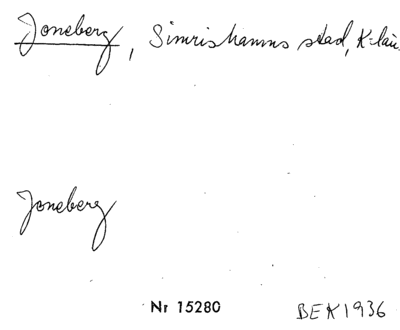 Joneberg, Simrishamns stad, K-län.
Joneberg
Nr 15280 BEK 1936